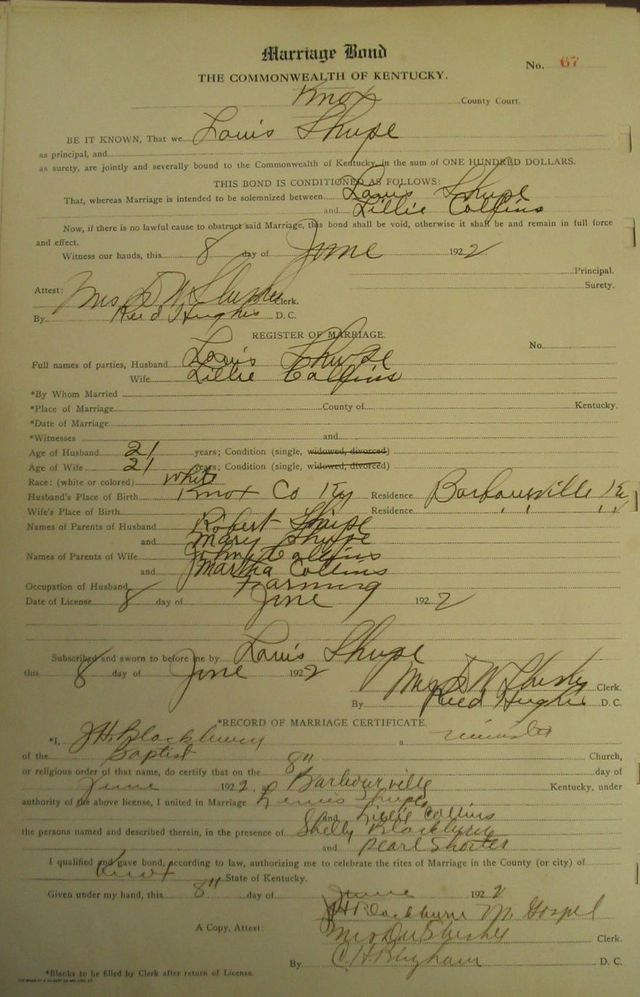 Marriage Bond
No. 67
THE COMMONWEALTH OF KENTUCKY.
Knox County Court.
BE IT KNOWN, That we Louis Shupe
as principal, and
as surety, are jointly and severally bound to the Commonwealth of Kentucky, in the sum of ONE HUNDRED DOLLARS.
THIS BOND IS CONDITIONED AS FOLLOWS:
That, whereas Marriage is intended to be solemnized between Louis Shupe
and Lillie Collins
Now, if there is no lawful cause to obstruct said Marriage, this bond shall be void, otherwise it shall be and remain in full force
and effect.
Witness our hands, this 8 day of June 1922
Principal.
Surety.
Attest: Mrs D W Clerk.
By Reed Hughes D. C.
REGISTER OF MARRIAGE.
No.
Full names of parties, Husband Louis Shupe
Wife Lillie Collins
*By Whom Married
*Place of Marriage County of Kentucky.
*Date of Marriage
*Witnesses and
Age of Husband 21 years; Condition (single, widowed, divorced)
Age of Wife 21 years; Condition (single, widowed, divorced)
Race: (white or colored) White
Husband's Place of Birth Knox Co Ky Residence Barbourville Ky
Wife's Place of Birth Residence " "
Names of Parents of Husband Robert Shupe
and Mary Shupe
Names of Parents of Wife John Collins
and Martha Collins
Occupation of Husband Farming
Date of License 8 day of June 1922
Subscribed and sworn to before me by Louis Shupe
this 8 day of June 1922
Mrs D W Clerk.
By Reed Hughes D. C.
*RECORD OF MARRIAGE CERTIFICATE.
*I, J H Blackburn a minister
of the Baptist Church,
or religious order of that name, do certify that on the 8" day of
June 1922, at Barbourville Kentucky, under
authority of the above license, I united in Marriage Shupe
and Lillie Collins
the persons named and described therein, in the presence of Shelly Blackburn
and Pearl Shorter
I qualified and gave bond, according to law, authorizing me to celebrate the rites of Marriage in the County (or city) of
Knox State of Kentucky.
Given under my hand, this 8" day of June 1922
J H Blackburn M. Gospel
A Copy, Attest: Mrs Clerk.
By C. H. Bingham D. C.
*Blanks to be filled by Clerk after return of License.